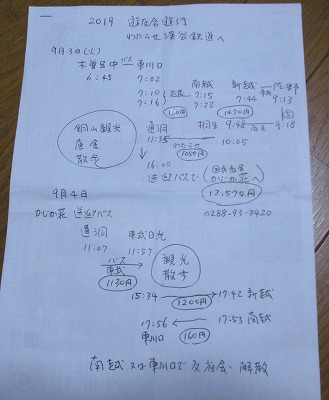 2019 遊友会遊行
わたらせ渓谷鉄道へ
9月3日(火)
木曽呂中 バス 東川口
6:45 7:02
7:10 武蔵 南越 新越 佐野
7:16 7:15 7:44 9:13
160円 7:22 1470円
桐生 9:48 両毛 9:18
通洞 わたらせ 10:05
11:35 1050円
銅山観光
昼食
散歩
16:00
送迎バスで 国民宿舎
かじか荘へ
12,570円
9月4日 0288-93-3420
かじか荘 送迎バス
通洞 東武日光
11:07 11:57
バス 観光
東武 散歩
1130円
15:34 → 17:42 新越
1200円
17:56 ← 17:53 南越
東川口 160円
南越又は東川口で反省会・解散